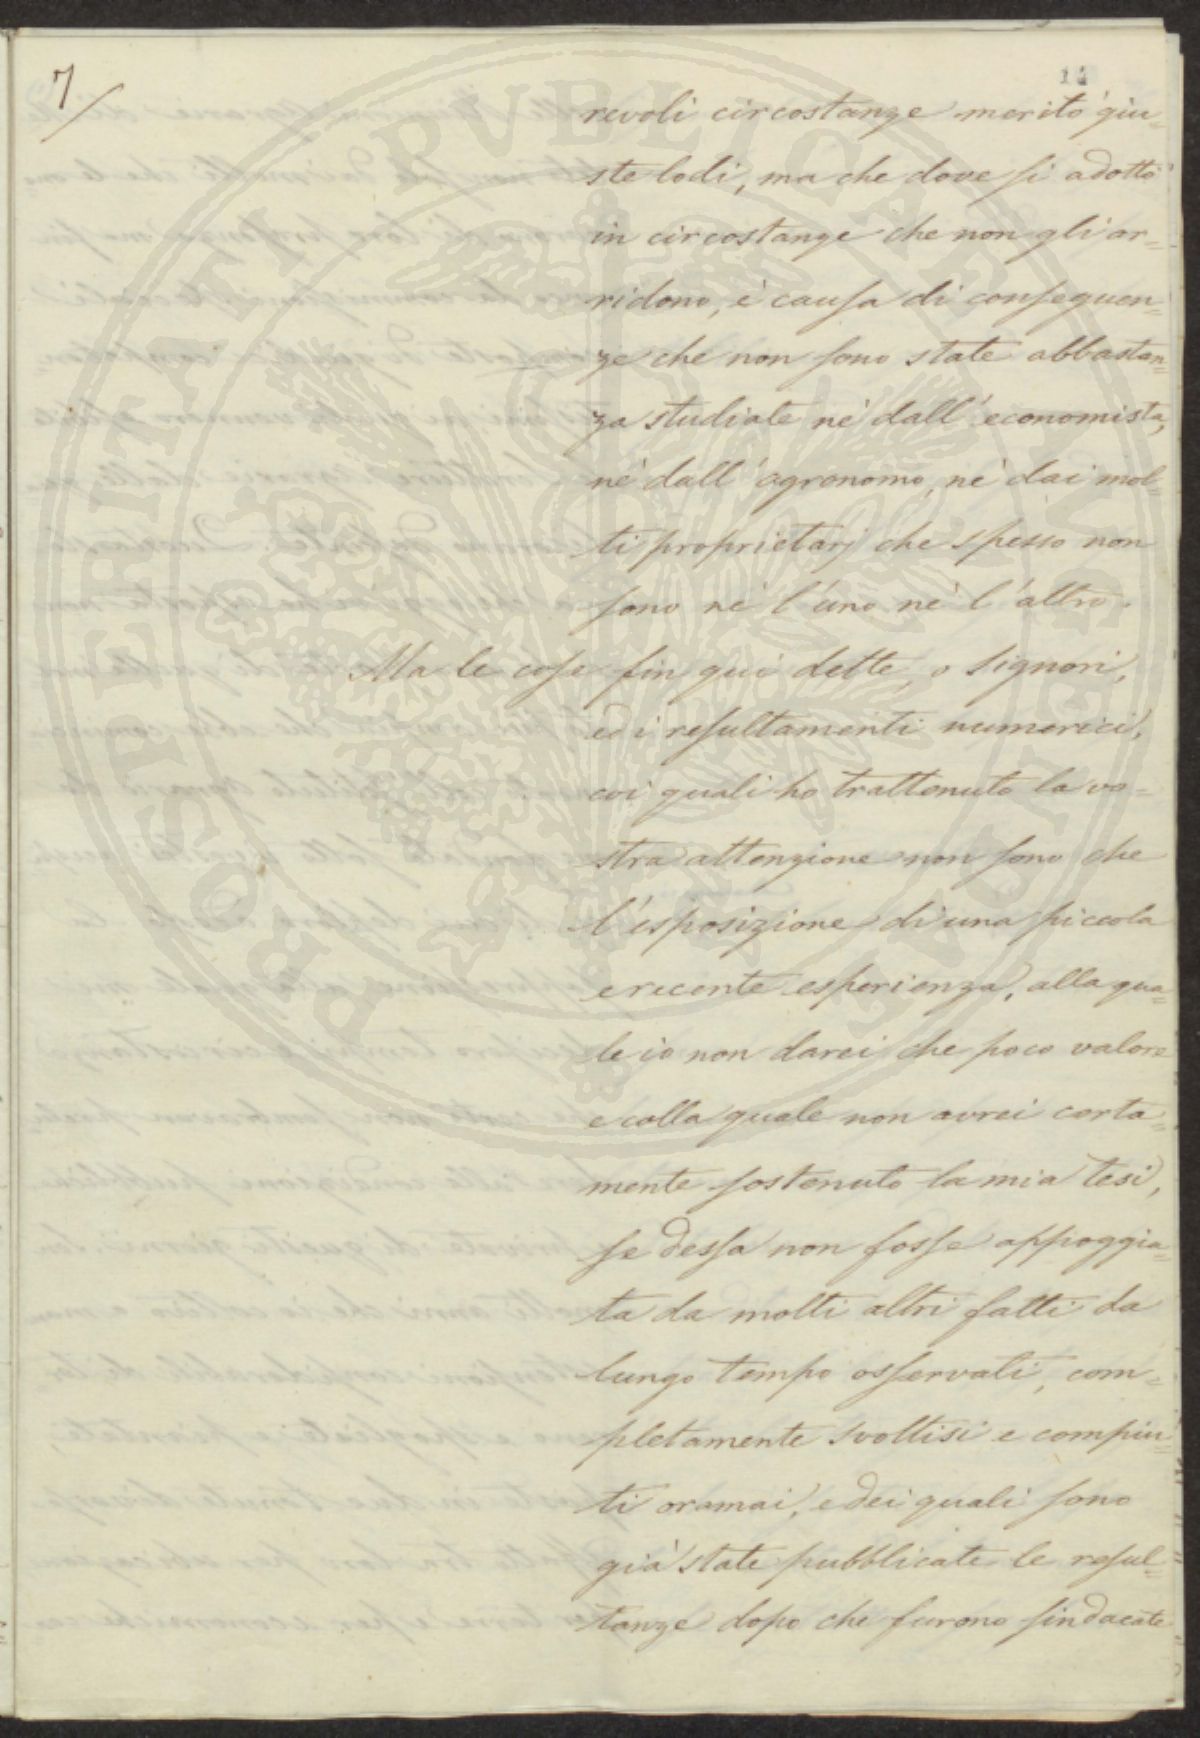 7/
14
revoli circostanze meritò giu=
ste lodi, ma che dove si adottò
in circostanze che non gli ar=
ridono, è causa di conseguen=
ze che non sono state abbastan=
za studiate nè dall'economista,
nè dall'agronomo, nè dai mol=
ti proprietarj che spesso non
sono nè l'uno nè l'altro.
Ma le cose fin qui dette, o signori,
ed i resultamenti numerici,
coi quali ho trattenuto la vo=
stra attenzione non sono che
l'esposizione di una piccola
e recente esperienza, alla qua=
le io non darei che poco valore
e colla quale non avrei certa=
mente sostenuto la mia tesi,
se dessa non fosse appoggia=
ta da molti altri fatti da
lungo tempo osservati, com=
pletamente svoltisi e compiu=
ti oramai, e dei quali sono
già state pubblicate le resul=
tanze dopo che furono sindacate
PROSPERITATI PUBLICAE AUGENDAE